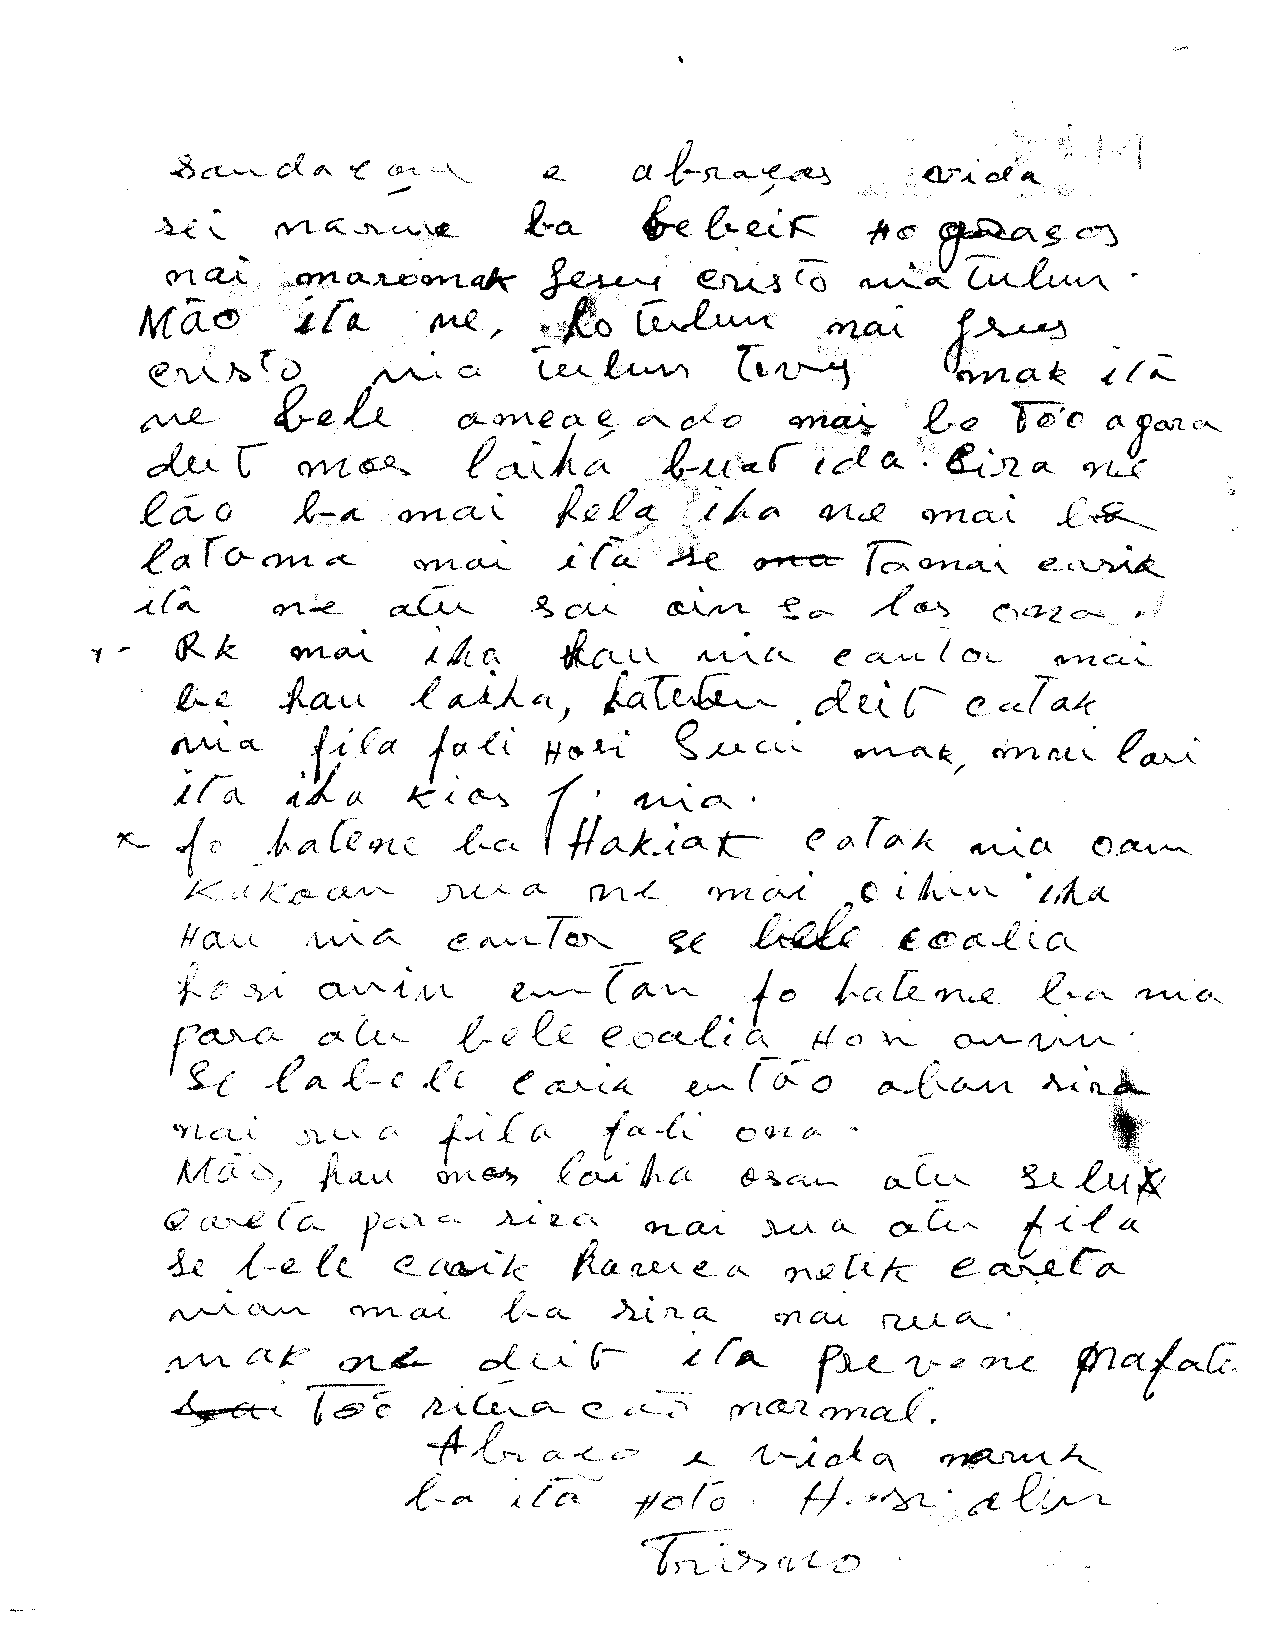 Saudaçoẽ e abraças vida
sei naruk ba bebeik ho graças
nai maromak Jesus cristo nia tulun.
Mão ita ne, ho tulun nai Jesus
cristo nia tulun mak ita
ne bele ameaçado mai be Tóo agora
deit mos laiha buat ida. Sira ne
lão ba mai hela iha ne mai be
latama mai ita se Tamai carik
ita ne atu sai
- Rk mai iha hau nia cantor mai
be hau laiha, hateten deit catak
nia fila fali Hosi Suai mak, mai lori
ita iha kios
x fo hatene ba Hakiak catak nia oan
Kakoan rua ne mai cihin iha
Hau nia cantor se bele coalia
hosi anin entan fo hatene ba nia
para atu bele coalia Hosi anin.
Se labele caric então aban sira
nai rua fila fali ona.
Mão, hau mos laiha osan atu selu
careta para sira nai rua atu fila
se bele carik haruca netik careta
nian mai ba sira nai rua.
mak ne deit ita prevene nafati
Tóo situacaõ normal.
Abraco e vida naruk
ba ita Hoto. Hosi alin